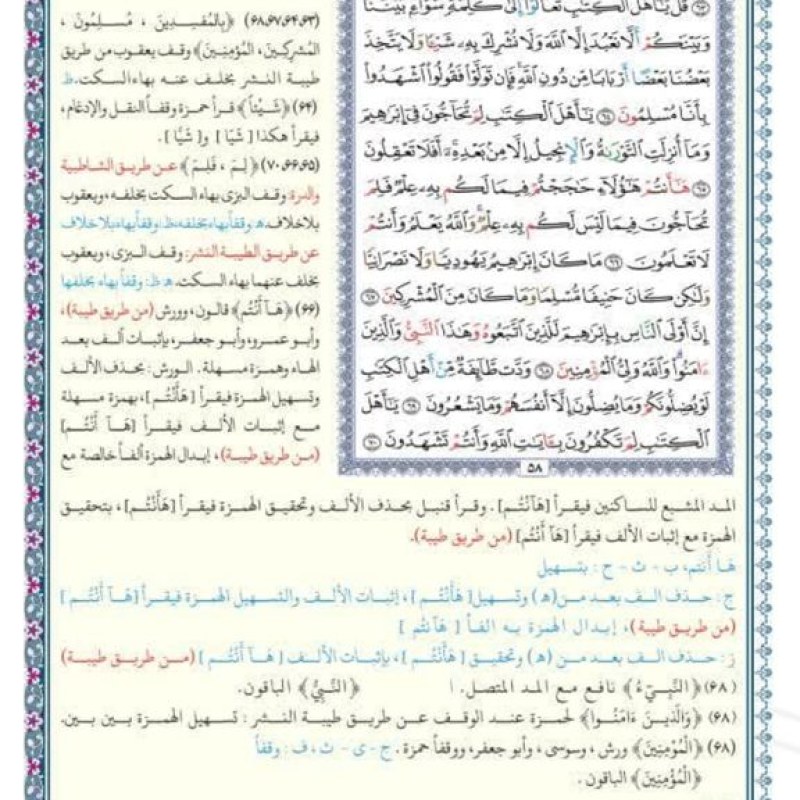 قُلْ يَٰٓأَهْلَ ٱلْكِتَٰبِ تَعَالَوْا۟ إِلَىٰ كَلِمَةٍ سَوَآءٍۭ بَيْنَنَا
وَبَيْنَكُمْ أَلَّا نَعْبُدَ إِلَّا ٱللَّهَ وَلَا نُشْرِكَ بِهِۦ شَيْـًٔا وَلَا يَتَّخِذَ
بَعْضُنَا بَعْضًا أَرْبَابًا مِّن دُونِ ٱللَّهِ فَإِن تَوَلَّوْا۟ فَقُولُوا۟ ٱشْهَدُوا۟
بِأَنَّا مُسْلِمُونَ ٦٤ يَٰٓأَهْلَ ٱلْكِتَٰبِ لِمَ تُحَآجُّونَ فِىٓ إِبْرَٰهِيمَ
وَمَآ أُنزِلَتِ ٱلتَّوْرَىٰةُ وَٱلْإِنجِيلُ إِلَّا مِنۢ بَعْدِهِۦٓ أَفَلَا تَعْقِلُونَ
٦٥ هَٰٓأَنتُمْ هَٰٓؤُلَآءِ حَٰجَجْتُمْ فِيمَا لَكُم بِهِۦ عِلْمٌ فَلِمَ
تُحَآجُّونَ فِيمَا لَيْسَ لَكُم بِهِۦ عِلْمٌ وَٱللَّهُ يَعْلَمُ وَأَنتُمْ
لَا تَعْلَمُونَ ٦٦ مَا كَانَ إِبْرَٰهِيمُ يَهُودِيًّا وَلَا نَصْرَانِيًّا
وَلَٰكِن كَانَ حَنِيفًا مُّسْلِمًا وَمَا كَانَ مِنَ ٱلْمُشْرِكِينَ ٦٧
إِنَّ أَوْلَى ٱلنَّاسِ بِإِبْرَٰهِيمَ لَلَّذِينَ ٱتَّبَعُوهُ وَهَٰذَا ٱلنَّبِىُّ وَٱلَّذِينَ
ءَامَنُوا۟ وَٱللَّهُ وَلِىُّ ٱلْمُؤْمِنِينَ ٦٨ وَدَّت طَّآئِفَةٌ مِّنْ أَهْلِ ٱلْكِتَٰبِ
لَوْ يُضِلُّونَكُمْ وَمَا يُضِلُّونَ إِلَّآ أَنفُسَهُمْ وَمَا يَشْعُرُونَ ٦٩ يَٰٓأَهْلَ
ٱلْكِتَٰبِ لِمَ تَكْفُرُونَ بِـَٔايَٰتِ ٱللَّهِ وَأَنتُمْ تَشْهَدُونَ ٧٠
٥٨
(٦٣،٦٤،٦٧،٦٨) ﴿بِالْمُفْسِدِينَ ، مُسْلِمُونَ ،
الْمُشْرِكِينَ، الْمُؤْمِنِينَ﴾ وقف يعقوب من طريق
طيبة النشر بخلف عنه بهاء السكت.ظ
(٦٤) ﴿شَيْئاً﴾ قرأ حمزة وقفاً النقل والإدغام ،
فيقرأ هكذا [شَيَا] و[شَيًّا] .
(٦٥،٦٦،٧٠) ﴿لِمَ ، فَلِمَ﴾ عن طريق الشاطبية
والدرة: وقف البزى بهاء السكت بخلفه، ويعقوب
بلا خلاف. ه وقفاً بهاء بخلفه، ظ: وقفاً بهاء بلا خلاف
عن طريق الطيبة النشر: وقف البزى، ويعقوب
بخلف عنهما بهاء السكت. ه ظ: وقفاً بهاء بخلفها
(٦٦) ﴿هَآ أَنْتُم﴾ قالون، وورش (من طريق طيبة)،
وأبو عمرو، وأبو جعفر، بإثبات ألف بعد
الهاء وهمزة مسهلة . الورش: بحذف الألف
وتسهيل الهمزة فيقرأ [هَأَنْتُم]، بهمزة مسهلة
مع إثبات الألف فيقرأ [هَآ أَنْتُم]
(من طريق طيبة)، إبدال الهمزة ألفاً خالصة مع
المد المشبع للساكنين فيقرأ [هَآنْتُم] . وقرأ قنبل بحذف الألف وتحقيق الهمزة فيقرأ [هَأَنْتُم]، بتحقيق
الهمزة مع إثبات الألف فيقرأ [هَآ أَنْتُم] (من طريق طيبة).
هَآ أَنتم، ب - ث - ح : بتسهيل
ج : حذف الف بعد من(ه) وتسهيل[ هَأَنْتُم ]، إثبات الألف والتسهيل الهمزة فيقرأ [هَآ أَنْتُم ]
(من طريق طيبة)، إبدال الهمزة به الفاً [ هَآنْتُم ]
ز : حذف الف بعد من (ه) وتحقيق [هَأَنْتُم ]، بإثبات الألف [هَآ أَنْتُم ] (من طريق طيبة)
(٦٨) ﴿النَّبِيءُ﴾ نافع مع المد المتصل. ا ﴿النَّبِيُّ﴾ الباقون.
(٦٨) ﴿وَالَّذِينَ ءَامَنُوا﴾ لحمزة عند الوقف عن طريق طيبة النشر : تسهيل الهمزة بين بين.
(٦٨) ﴿الْمُوْمِنِينَ﴾ ورش، وسوسى، وأبو جعفر، ووقفاً حمزة . ج - ى - ث ، ف : وقفاً
﴿الْمُؤْمِنِينَ﴾ الباقون .